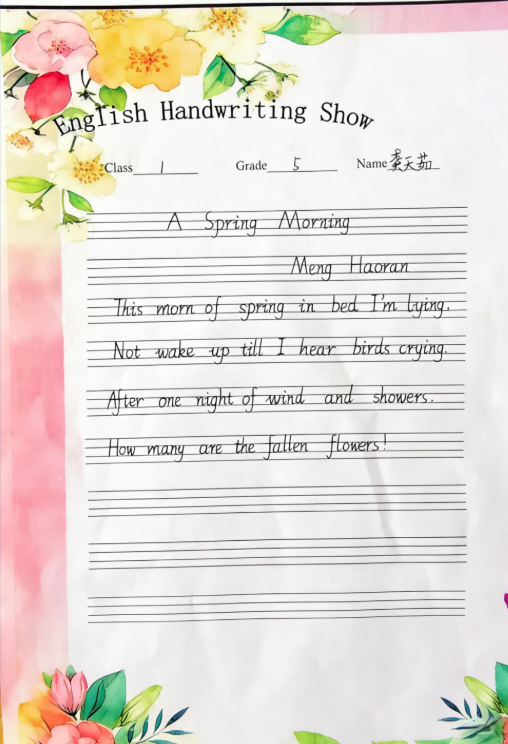 English Handwriting Show
Class 1 Grade 5 Name 龚天茹
A Spring Morning
Meng Haoran
This morn of spring in bed I'm lying.
Not wake up till I hear birds crying.
After one night of wind and showers.
How many are the fallen flowers!